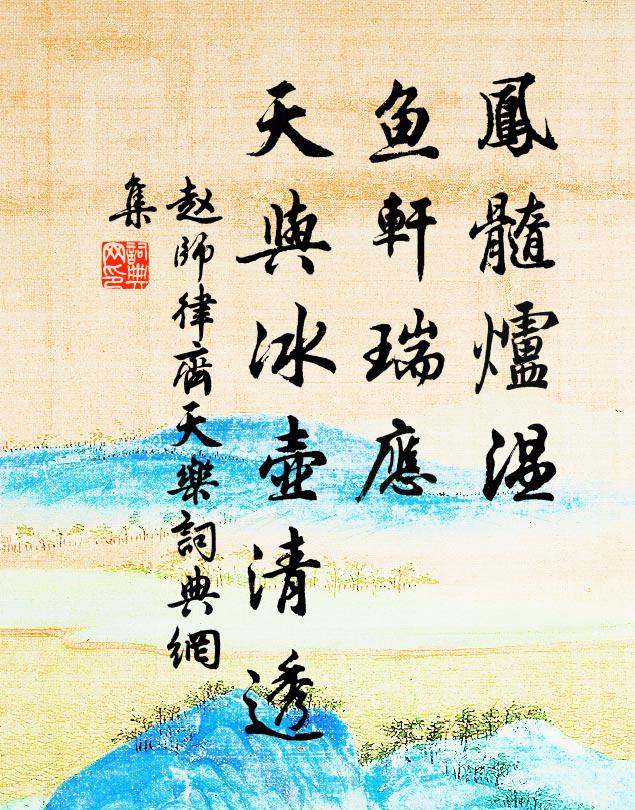 鳳髓爐温
魚軒瑞應
天與冰壺清透
赵師律齊天樂詞典網
集
詞典網印